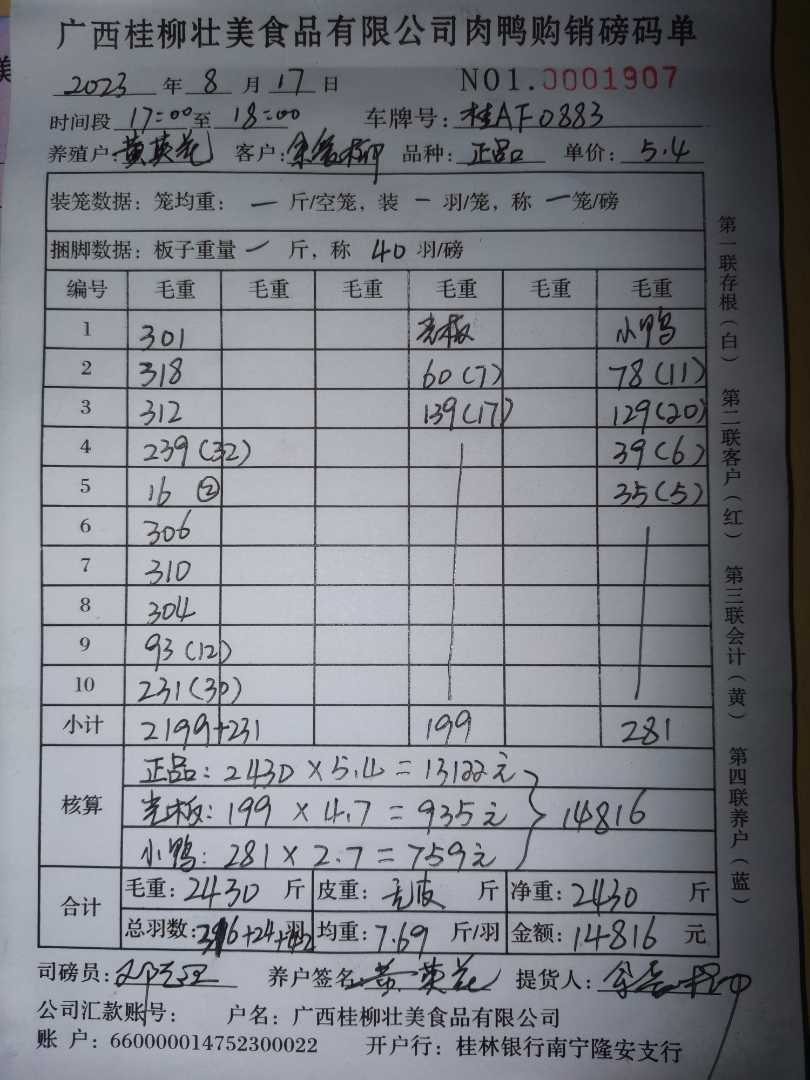 广西桂柳壮美食品有限公司肉鸭购销磅码单
2023 年 8 月 17 日 NO1.0001907
时间段 17:00 至 18:00 车牌号: 桂AF0883
养殖户 黄英花 客户: 柳 品种: 正品 单价: 5.4
装笼数据: 笼均重: 一 斤/空笼, 装 一 羽/笼, 称 一 笼/磅
捆脚数据: 板子重量 一 斤, 称 40 羽/磅
编号 毛重 毛重 毛重 毛重 毛重 毛重
1 301 光板 小鸭
2 318 60(7) 78(11)
3 312 139(17) 129(20)
4 239(32) 39(6)
5 16 ② 35(5)
6 306
7 310
8 304
9 93(12)
10 231(30)
小计 2199+231 199 281
核算
正品: 2430 × 5.4 = 13122元
光板: 199 × 4.7 = 935元 14816
小鸭: 281 × 2.7 = 759元
合计
毛重: 2430 斤 皮重: 斤 净重: 2430 斤
总羽数: 316+24+42 羽 均重: 7.69 斤/羽 金额: 14816 元
司磅员: 养户签名 黄英花 提货人: 柳
公司汇款账号: 户名: 广西桂柳壮美食品有限公司
账 户: 660000014752300022 开户行: 桂林银行南宁隆安支行
第一联存根(白)
第二联客户(红)
第三联会计(黄)
第四联养户(蓝)